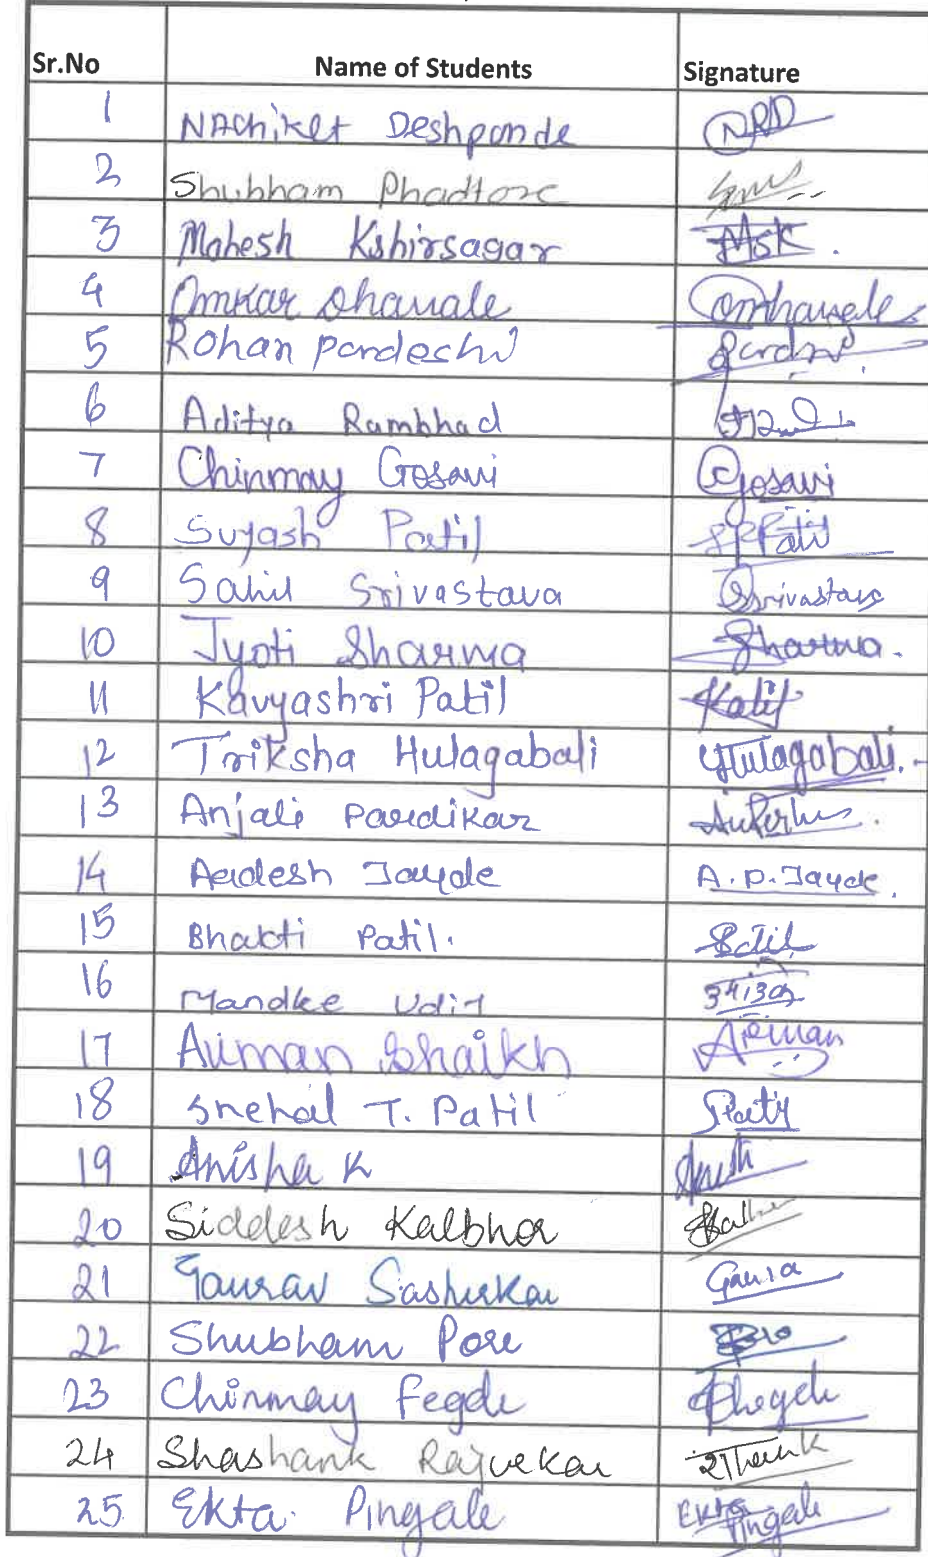 Sr.No Name of Students Signature
1 Nachiket Deshpande NRD
2 Shubham Phadtare
3 Mahesh Kshirsagar MSK.
4 Omkar Dhavale Omdhavale
5 Rohan Pardeshi
6 Aditya Rambhad
7 Chinmay Gosavi Gosavi
8 Suyash Patil Patil
9 Sahil Srivastava Srivastava
10 Jyoti Sharma Sharma.
11 Kavyashri Patil
12 Triksha Hulagabali Hulagabali.
13 Anjali Pardikar
14 Aadesh Jayde A.P.Jayde.
15 Bhakti Patil.
16 Mandke Udit
17 Aiman Shaikh Aiman
18 Snehal T. Patil
19 Anisha K
20 Siddesh Kalbhor
21 Gaurav
22 Shubham Pore
23 Chinmay Fegde
24 Shashank Rajvekar
25 Ekta. Pingale Ekta Pingale